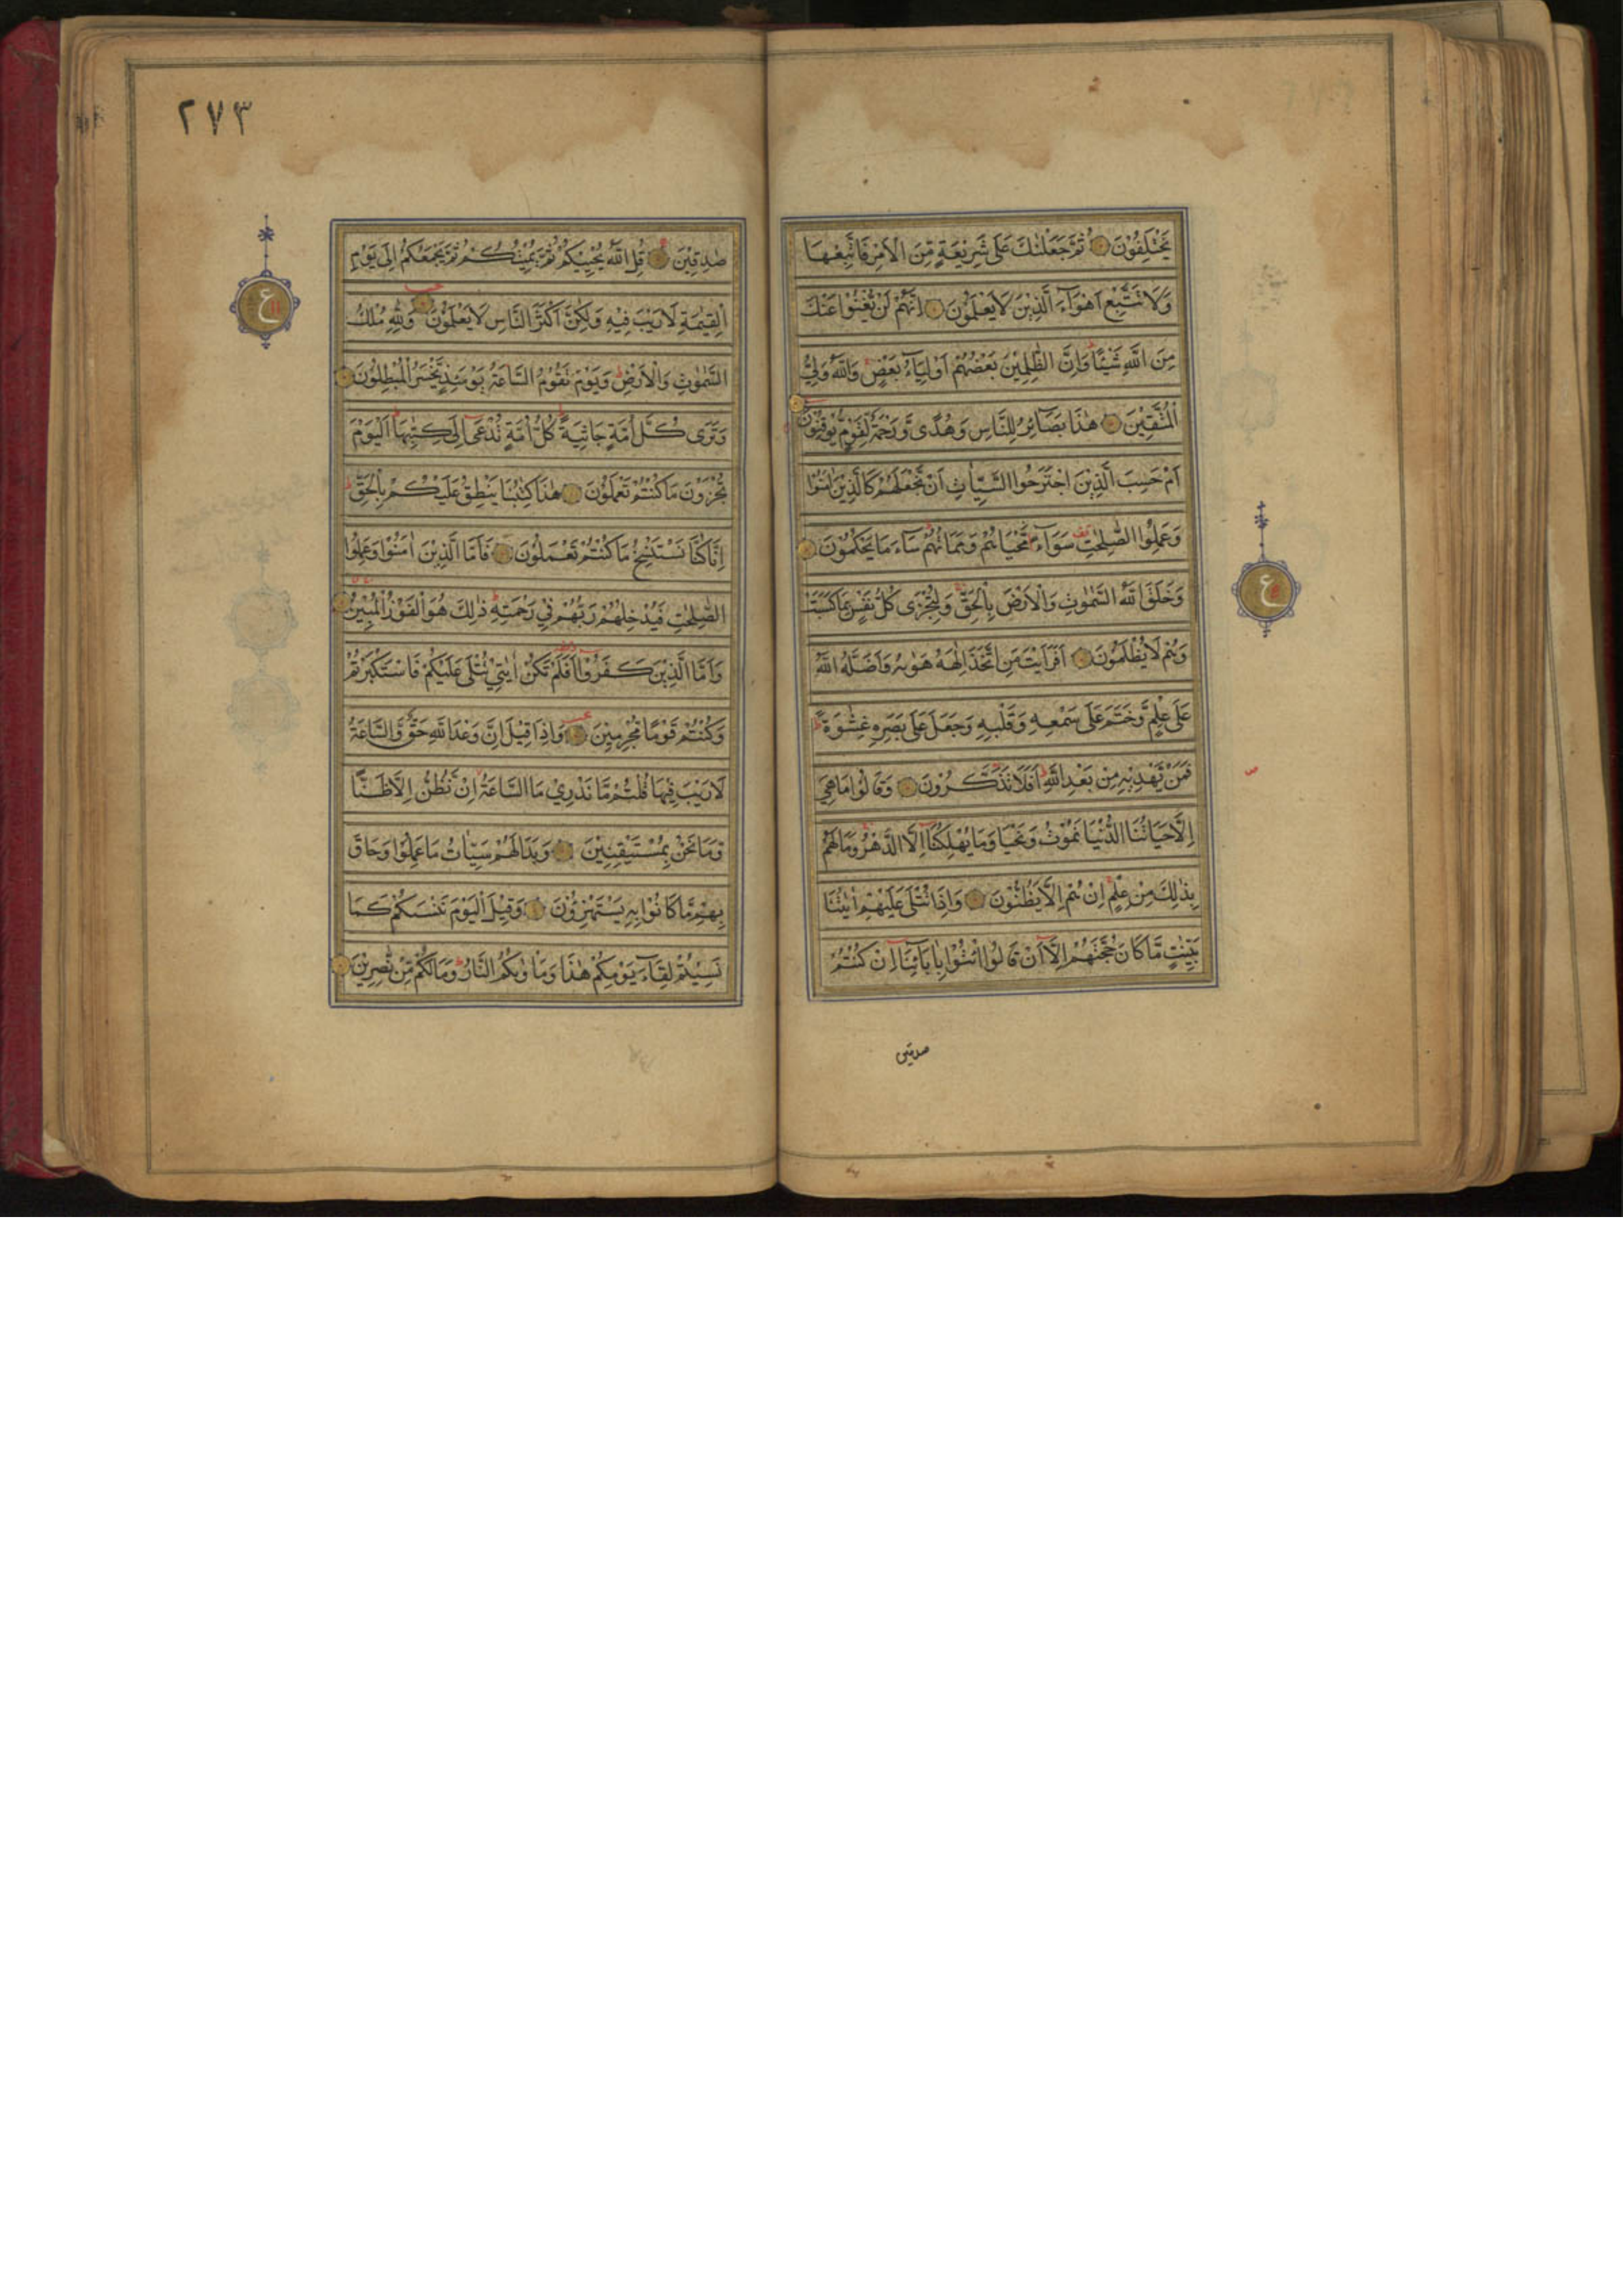 يَخْتَلِفُوْنَ ثُمَّ جَعَلْنٰكَ عَلٰى شَرِيْعَةٍ مِّنَ الْاَمْرِ فَاتَّبِعْهَا
وَلَا تَتَّبِعْ اَهْوَآءَ الَّذِيْنَ لَا يَعْلَمُوْنَ اِنَّهُمْ لَنْ يُّغْنُوْا عَنْكَ
مِنَ اللّٰهِ شَيْئًا وَاِنَّ الظّٰلِمِيْنَ بَعْضُهُمْ اَوْلِيَآءُ بَعْضٍ وَاللّٰهُ وَلِيُّ
الْمُتَّقِيْنَ هٰذَا بَصَآئِرُ لِلنَّاسِ وَهُدًى وَّرَحْمَةٌ لِّقَوْمٍ يُّوْقِنُوْنَ
اَمْ حَسِبَ الَّذِيْنَ اجْتَرَحُوا السَّيِّاٰتِ اَنْ نَّجْعَلَهُمْ كَالَّذِيْنَ اٰمَنُوْا
وَعَمِلُوا الصّٰلِحٰتِ سَوَآءً مَّحْيَاهُمْ وَمَمَاتُهُمْ سَآءَ مَا يَحْكُمُوْنَ
وَخَلَقَ اللّٰهُ السَّمٰوٰتِ وَالْاَرْضَ بِالْحَقِّ وَلِتُجْزٰى كُلُّ نَفْسٍ بِمَا كَسَبَتْ
وَهُمْ لَا يُظْلَمُوْنَ اَفَرَاَيْتَ مَنِ اتَّخَذَ اِلٰهَهُ هَوٰىهُ وَاَضَلَّهُ اللّٰهُ
عَلٰى عِلْمٍ وَّخَتَمَ عَلٰى سَمْعِهِ وَقَلْبِهِ وَجَعَلَ عَلٰى بَصَرِهِ غِشٰوَةً
فَمَنْ يَّهْدِيْهِ مِنْ بَعْدِ اللّٰهِ اَفَلَا تَذَكَّرُوْنَ وَقَالُوْا مَا هِيَ
اِلَّا حَيَاتُنَا الدُّنْيَا نَمُوْتُ وَنَحْيَا وَمَا يُهْلِكُنَآ اِلَّا الدَّهْرُ وَمَا لَهُمْ
بِذٰلِكَ مِنْ عِلْمٍ اِنْ هُمْ اِلَّا يَظُنُّوْنَ وَاِذَا تُتْلٰى عَلَيْهِمْ اٰيٰتُنَا
بَيِّنٰتٍ مَّا كَانَ حُجَّتَهُمْ اِلَّآ اَنْ قَالُوا ائْتُوْا بِاٰبَآئِنَآ اِنْ كُنْتُمْ
صدقين
ع
ع
٢٧٣
صٰدِقِيْنَ قُلِ اللّٰهُ يُحْيِيْكُمْ ثُمَّ يُمِيْتُكُمْ ثُمَّ يَجْمَعُكُمْ اِلٰى يَوْمِ
الْقِيٰمَةِ لَا رَيْبَ فِيْهِ وَلٰكِنَّ اَكْثَرَ النَّاسِ لَا يَعْلَمُوْنَ وَلِلّٰهِ مُلْكُ
السَّمٰوٰتِ وَالْاَرْضِ وَيَوْمَ تَقُوْمُ السَّاعَةُ يَوْمَئِذٍ يَّخْسَرُ الْمُبْطِلُوْنَ
وَتَرٰى كُلَّ اُمَّةٍ جَاثِيَةً كُلُّ اُمَّةٍ تُدْعٰٓى اِلٰى كِتٰبِهَا اَلْيَوْمَ
تُجْزَوْنَ مَا كُنْتُمْ تَعْمَلُوْنَ هٰذَا كِتٰبُنَا يَنْطِقُ عَلَيْكُمْ بِالْحَقِّ
اِنَّا كُنَّا نَسْتَنْسِخُ مَا كُنْتُمْ تَعْمَلُوْنَ فَاَمَّا الَّذِيْنَ اٰمَنُوْا وَعَمِلُوا
الصّٰلِحٰتِ فَيُدْخِلُهُمْ رَبُّهُمْ فِيْ رَحْمَتِهِ ذٰلِكَ هُوَ الْفَوْزُ الْمُبِيْنُ
وَاَمَّا الَّذِيْنَ كَفَرُوْٓا اَفَلَمْ تَكُنْ اٰيٰتِيْ تُتْلٰى عَلَيْكُمْ فَاسْتَكْبَرْتُمْ
وَكُنْتُمْ قَوْمًا مُّجْرِمِيْنَ وَاِذَا قِيْلَ اِنَّ وَعْدَ اللّٰهِ حَقٌّ وَّالسَّاعَةُ
لَا رَيْبَ فِيْهَا قُلْتُمْ مَّا نَدْرِيْ مَا السَّاعَةُ اِنْ نَّظُنُّ اِلَّا ظَنًّا
وَّمَا نَحْنُ بِمُسْتَيْقِنِيْنَ وَبَدَا لَهُمْ سَيِّاٰتُ مَا عَمِلُوْا وَحَاقَ
بِهِمْ مَّا كَانُوْا بِهِ يَسْتَهْزِءُوْنَ وَقِيْلَ الْيَوْمَ نَنْسٰىكُمْ كَمَا
نَسِيْتُمْ لِقَآءَ يَوْمِكُمْ هٰذَا وَمَاْوٰىكُمُ النَّارُ وَمَا لَكُمْ مِّنْ نّٰصِرِيْنَ